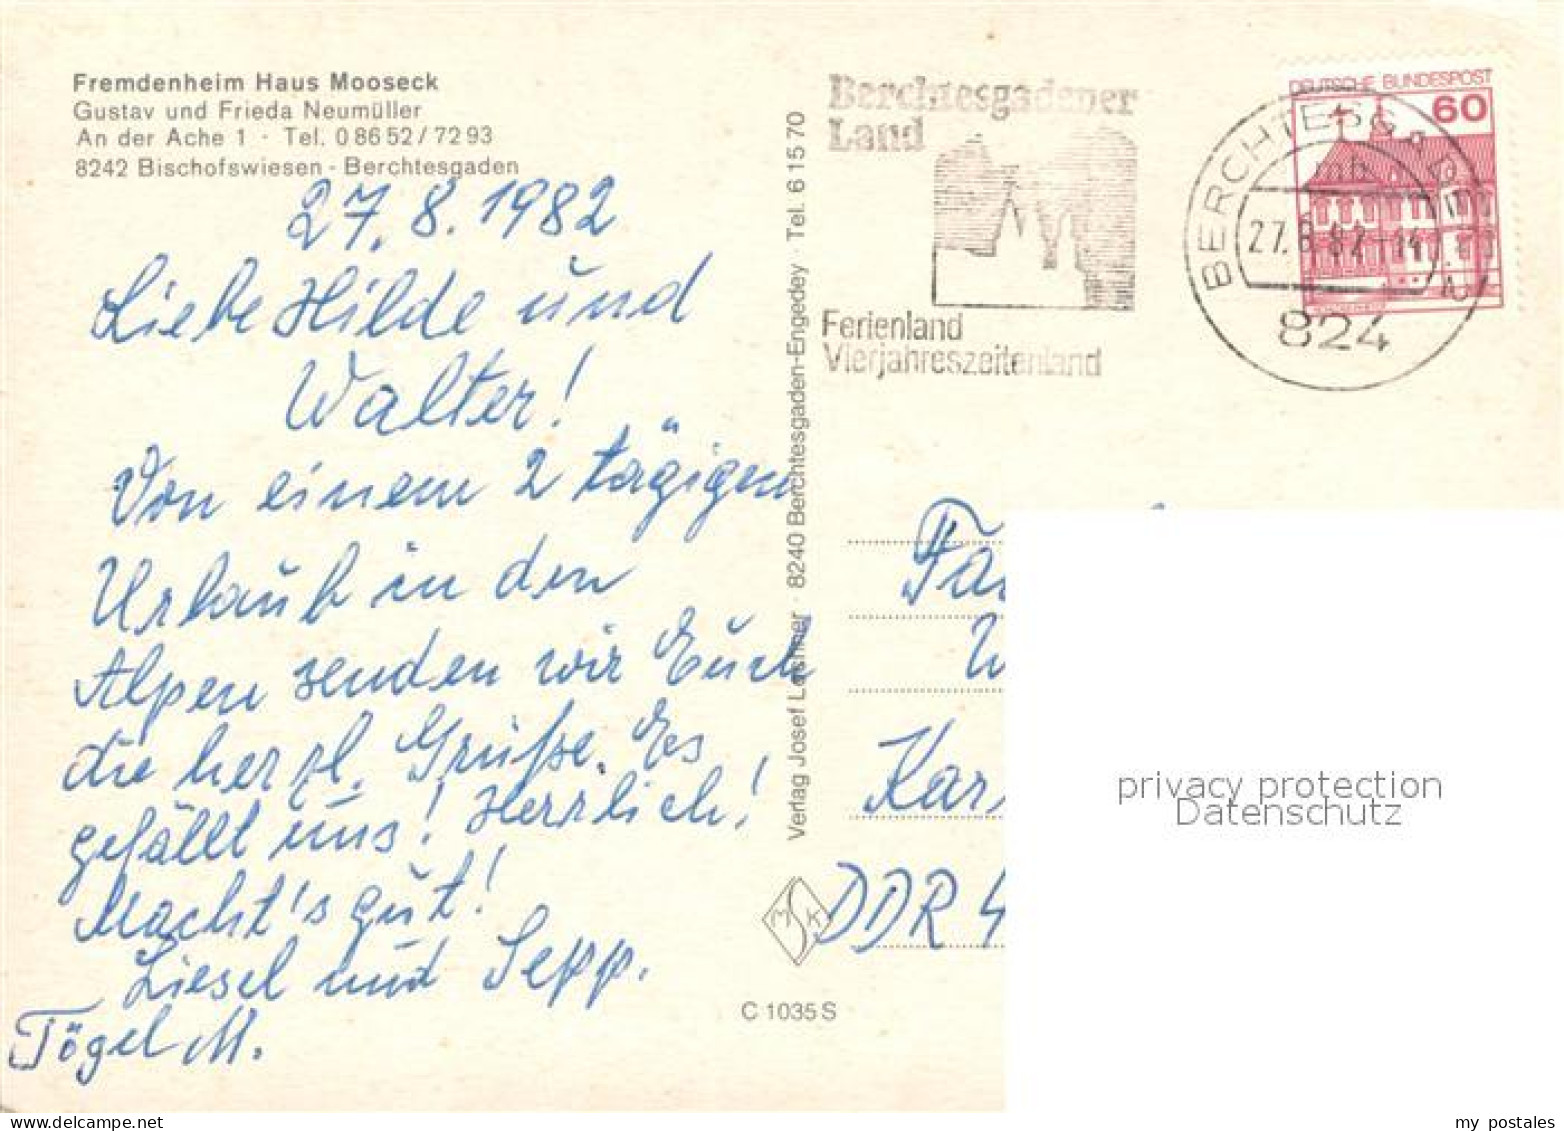 Fremdenheim Haus Mooseck
Gustav und Frieda Neumüller
An der Ache 1 · Tel. 0 86 52 / 72 93
8242 Bischofswiesen - Berchtesgaden
27.8.1982
Liebe Hilde und
Walter!
Von einem 2 tägigen
Urlaub in den
Alpen senden wir Euch
die herzl. Grüße. Es
gefällt uns! Herrlich!
Macht's gut!
Liesel und Sepp.
Tögel M.
Verlag Josef Lochner · 8240 Berchtesgaden-Engedey Tel. 6 15 70
C 1035 S
Berchtesgadener
Land
Ferienland
Vierjahreszeitenland
DEUTSCHE BUNDESPOST
60
BERCHTESGADEN 2
27.8.82-14
824
Fa
W
Kar
DDR 4
privacy protection
Datenschutz
my postales